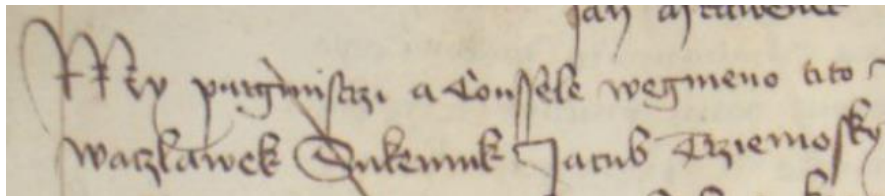 Jan
My purgmistrzi a Conssele wegmeno tito
waczlawek Sukennik Jacub Trziemosky